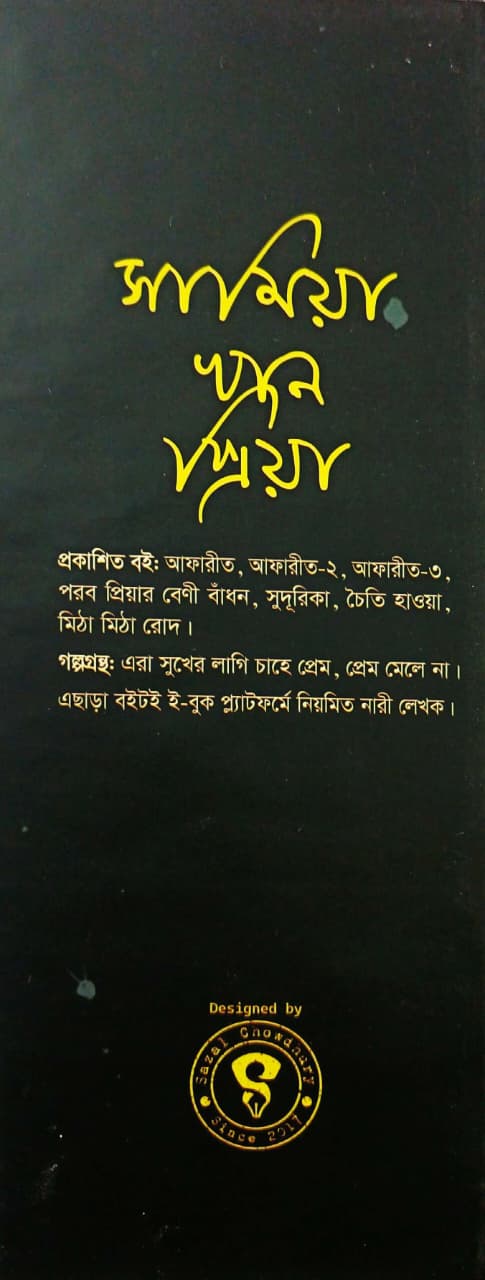 সামিয়া
খান
প্রিয়া
প্রকাশিত বই: আফারীত, আফারীত-২, আফারীত-৩,
পরব প্রিয়ার বেণী বাঁধন, সুদূরিকা, চৈতি হাওয়া,
মিঠা মিঠা রোদ।
গল্পগ্রন্থ: এরা সুখের লাগি চাহে প্রেম, প্রেম মেলে না।
এছাড়া বইটই ই-বুক প্ল্যাটফর্মে নিয়মিত নারী লেখক।
Designed by
Sazal Chowdhury
Since 2017